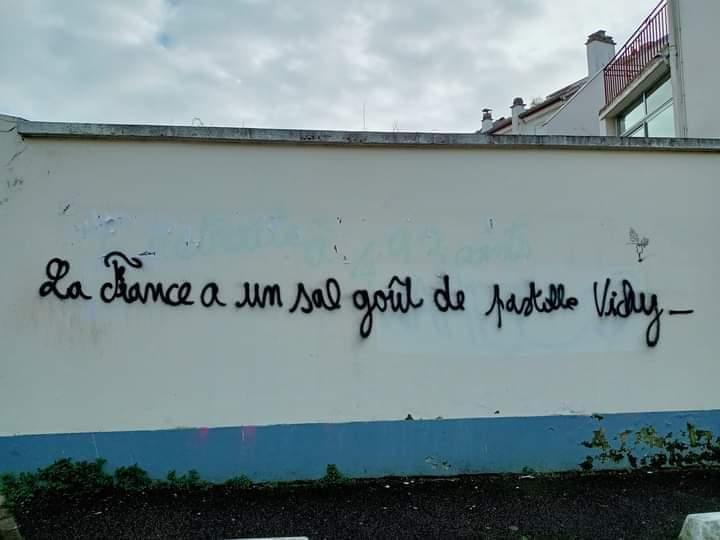 La France a un sal goût de pastille Vichy_